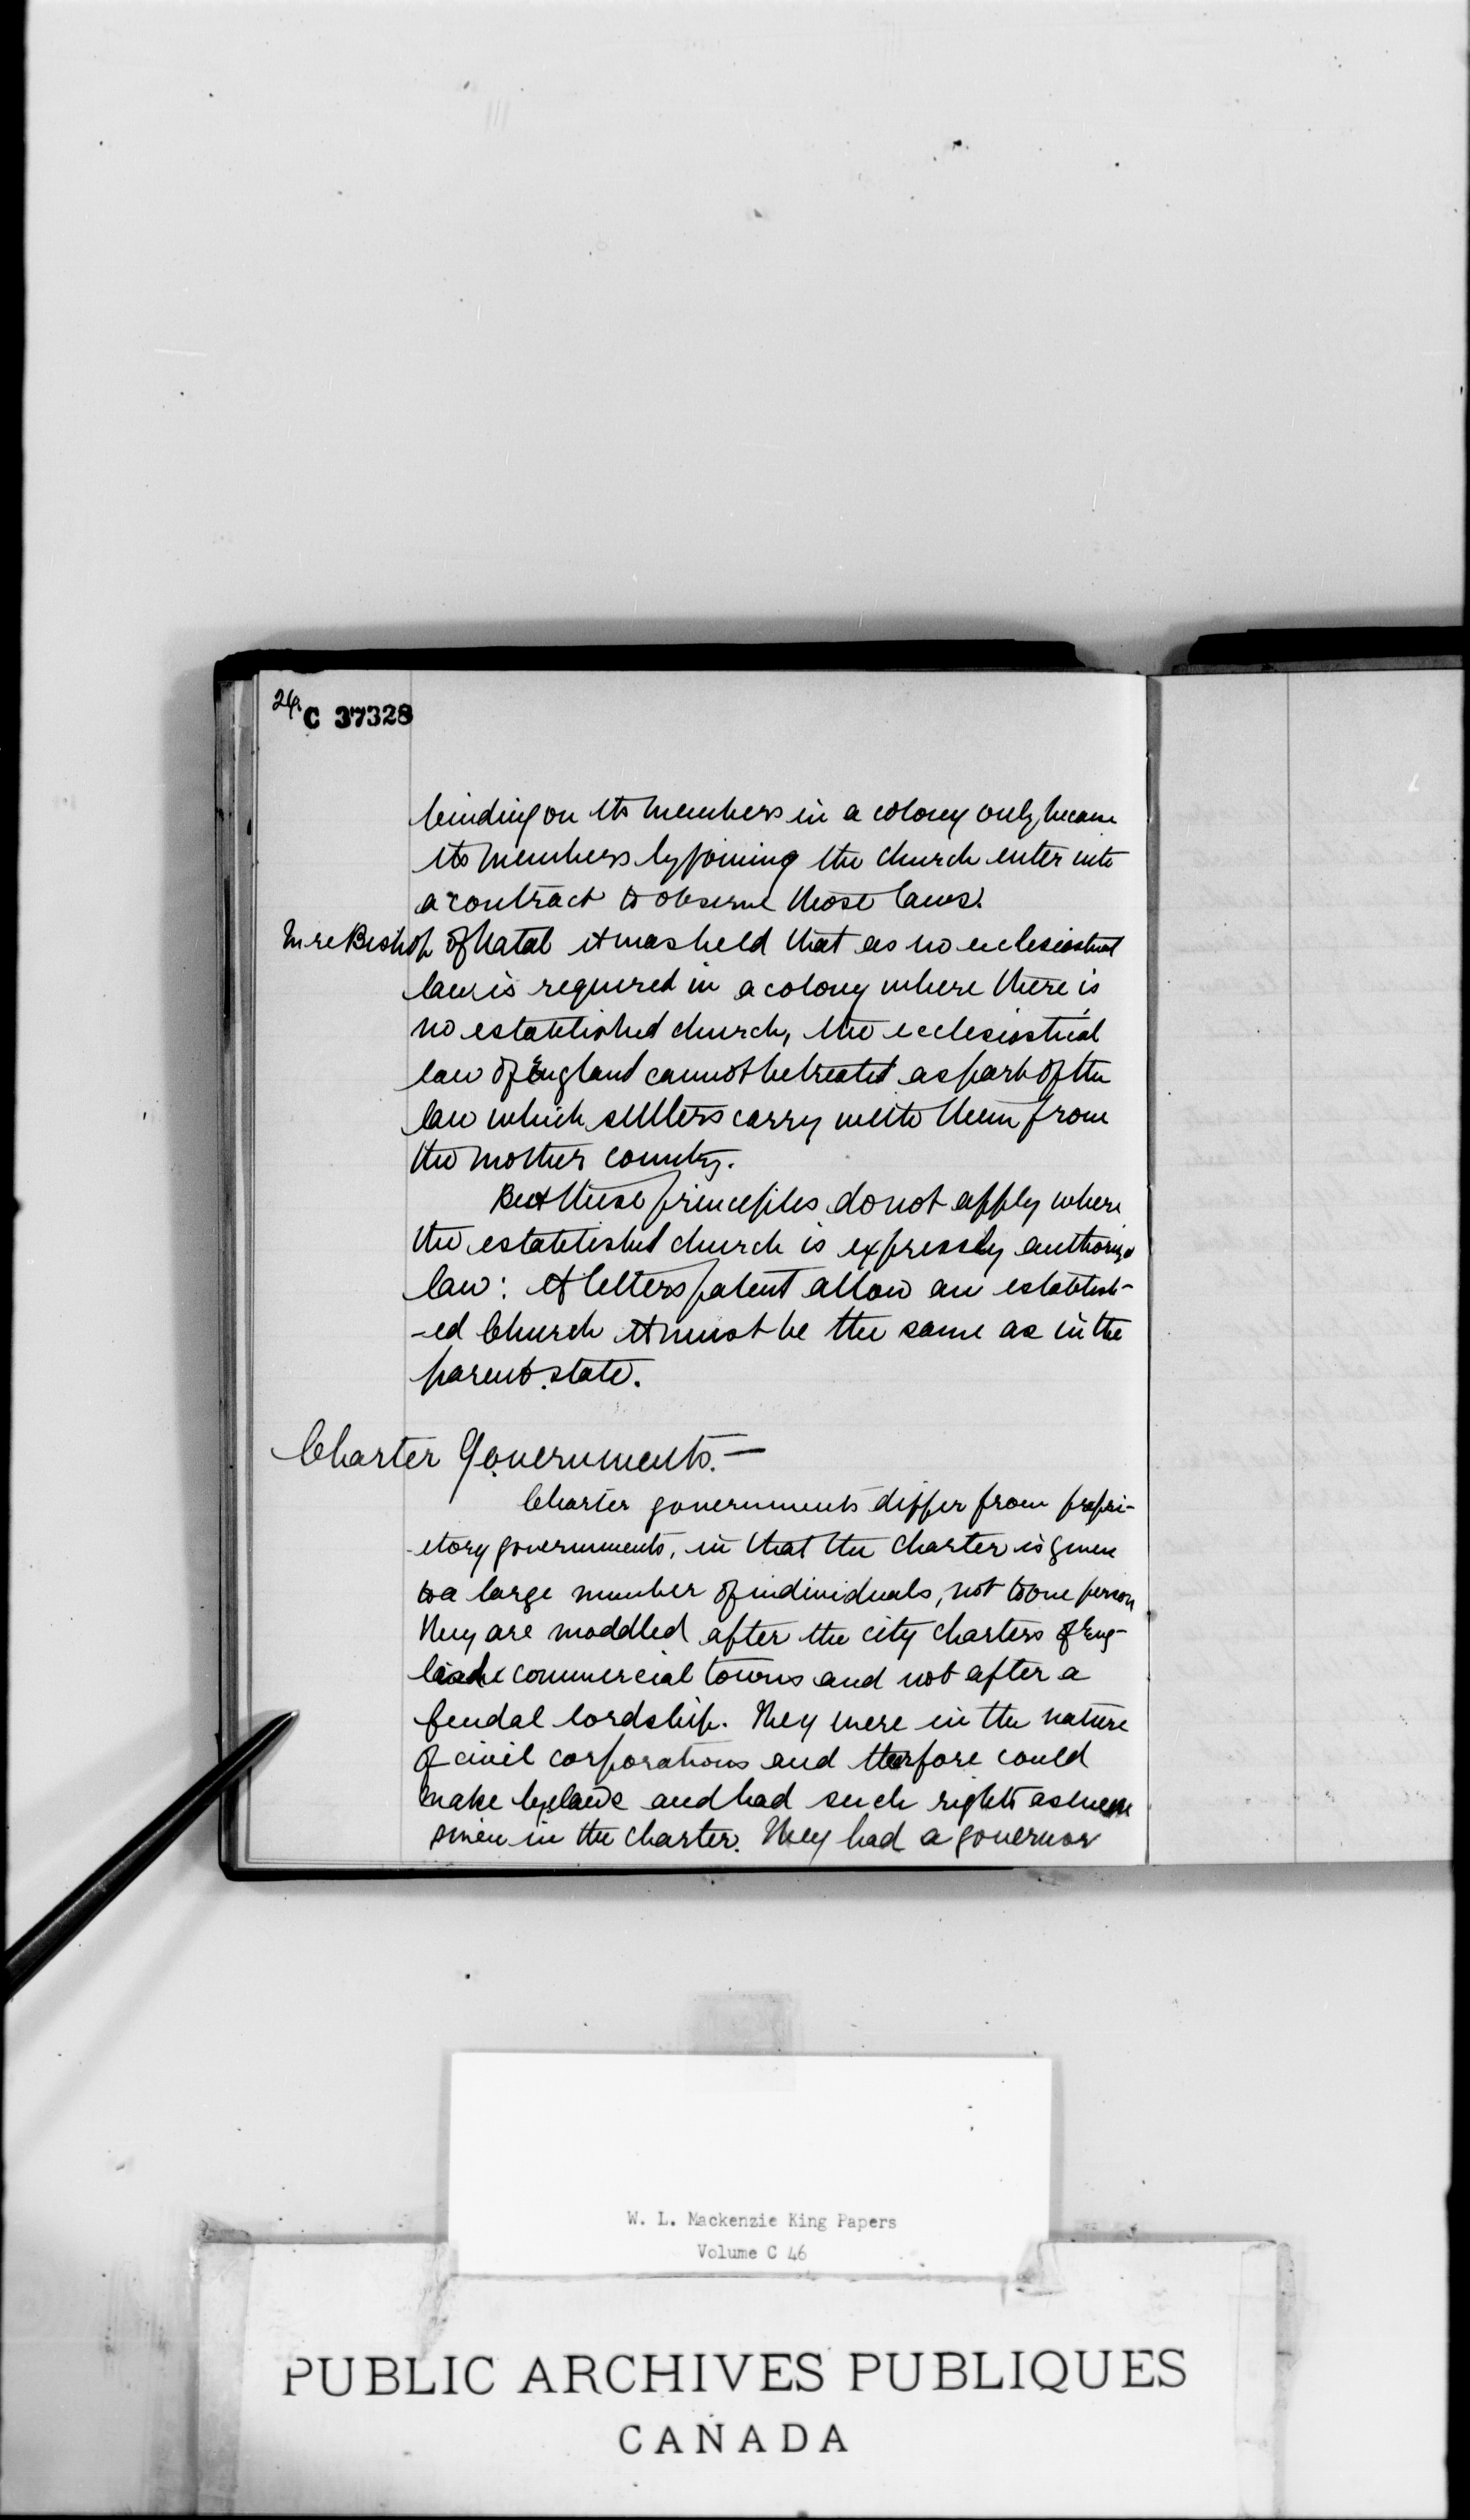 24.
C 37328
binding on its members in a colony only because
its members by joining the church enter into
a contract to observe those laws.
In re Bishop of Natal it was held that as no ecclesiastical
law is required in a colony where there is
no established church, the ecclesiastical
law of England cannot be treated as part of the
law which settlers carry with them from
the mother country.
But these principles do not apply where
the established church is expressly authorized
law: If letters patent allow an establish-
-ed Church it must be the same as in the
parent state.
Charter Governments.—
Charter governments differ from propri-
-etory governments, in that the charter is given
to a large number of individuals, not to one person
They are moddled after the city charters of Eng-
lish commercial towns and not after a
feudal lordship. They were in the nature
of civil corporations and therfore could
make byelaws and had such rights as were
given in the charter. They had a governor
W. L. Mackenzie King Papers
Volume C 46
PUBLIC ARCHIVES PUBLIQUES
CANADA